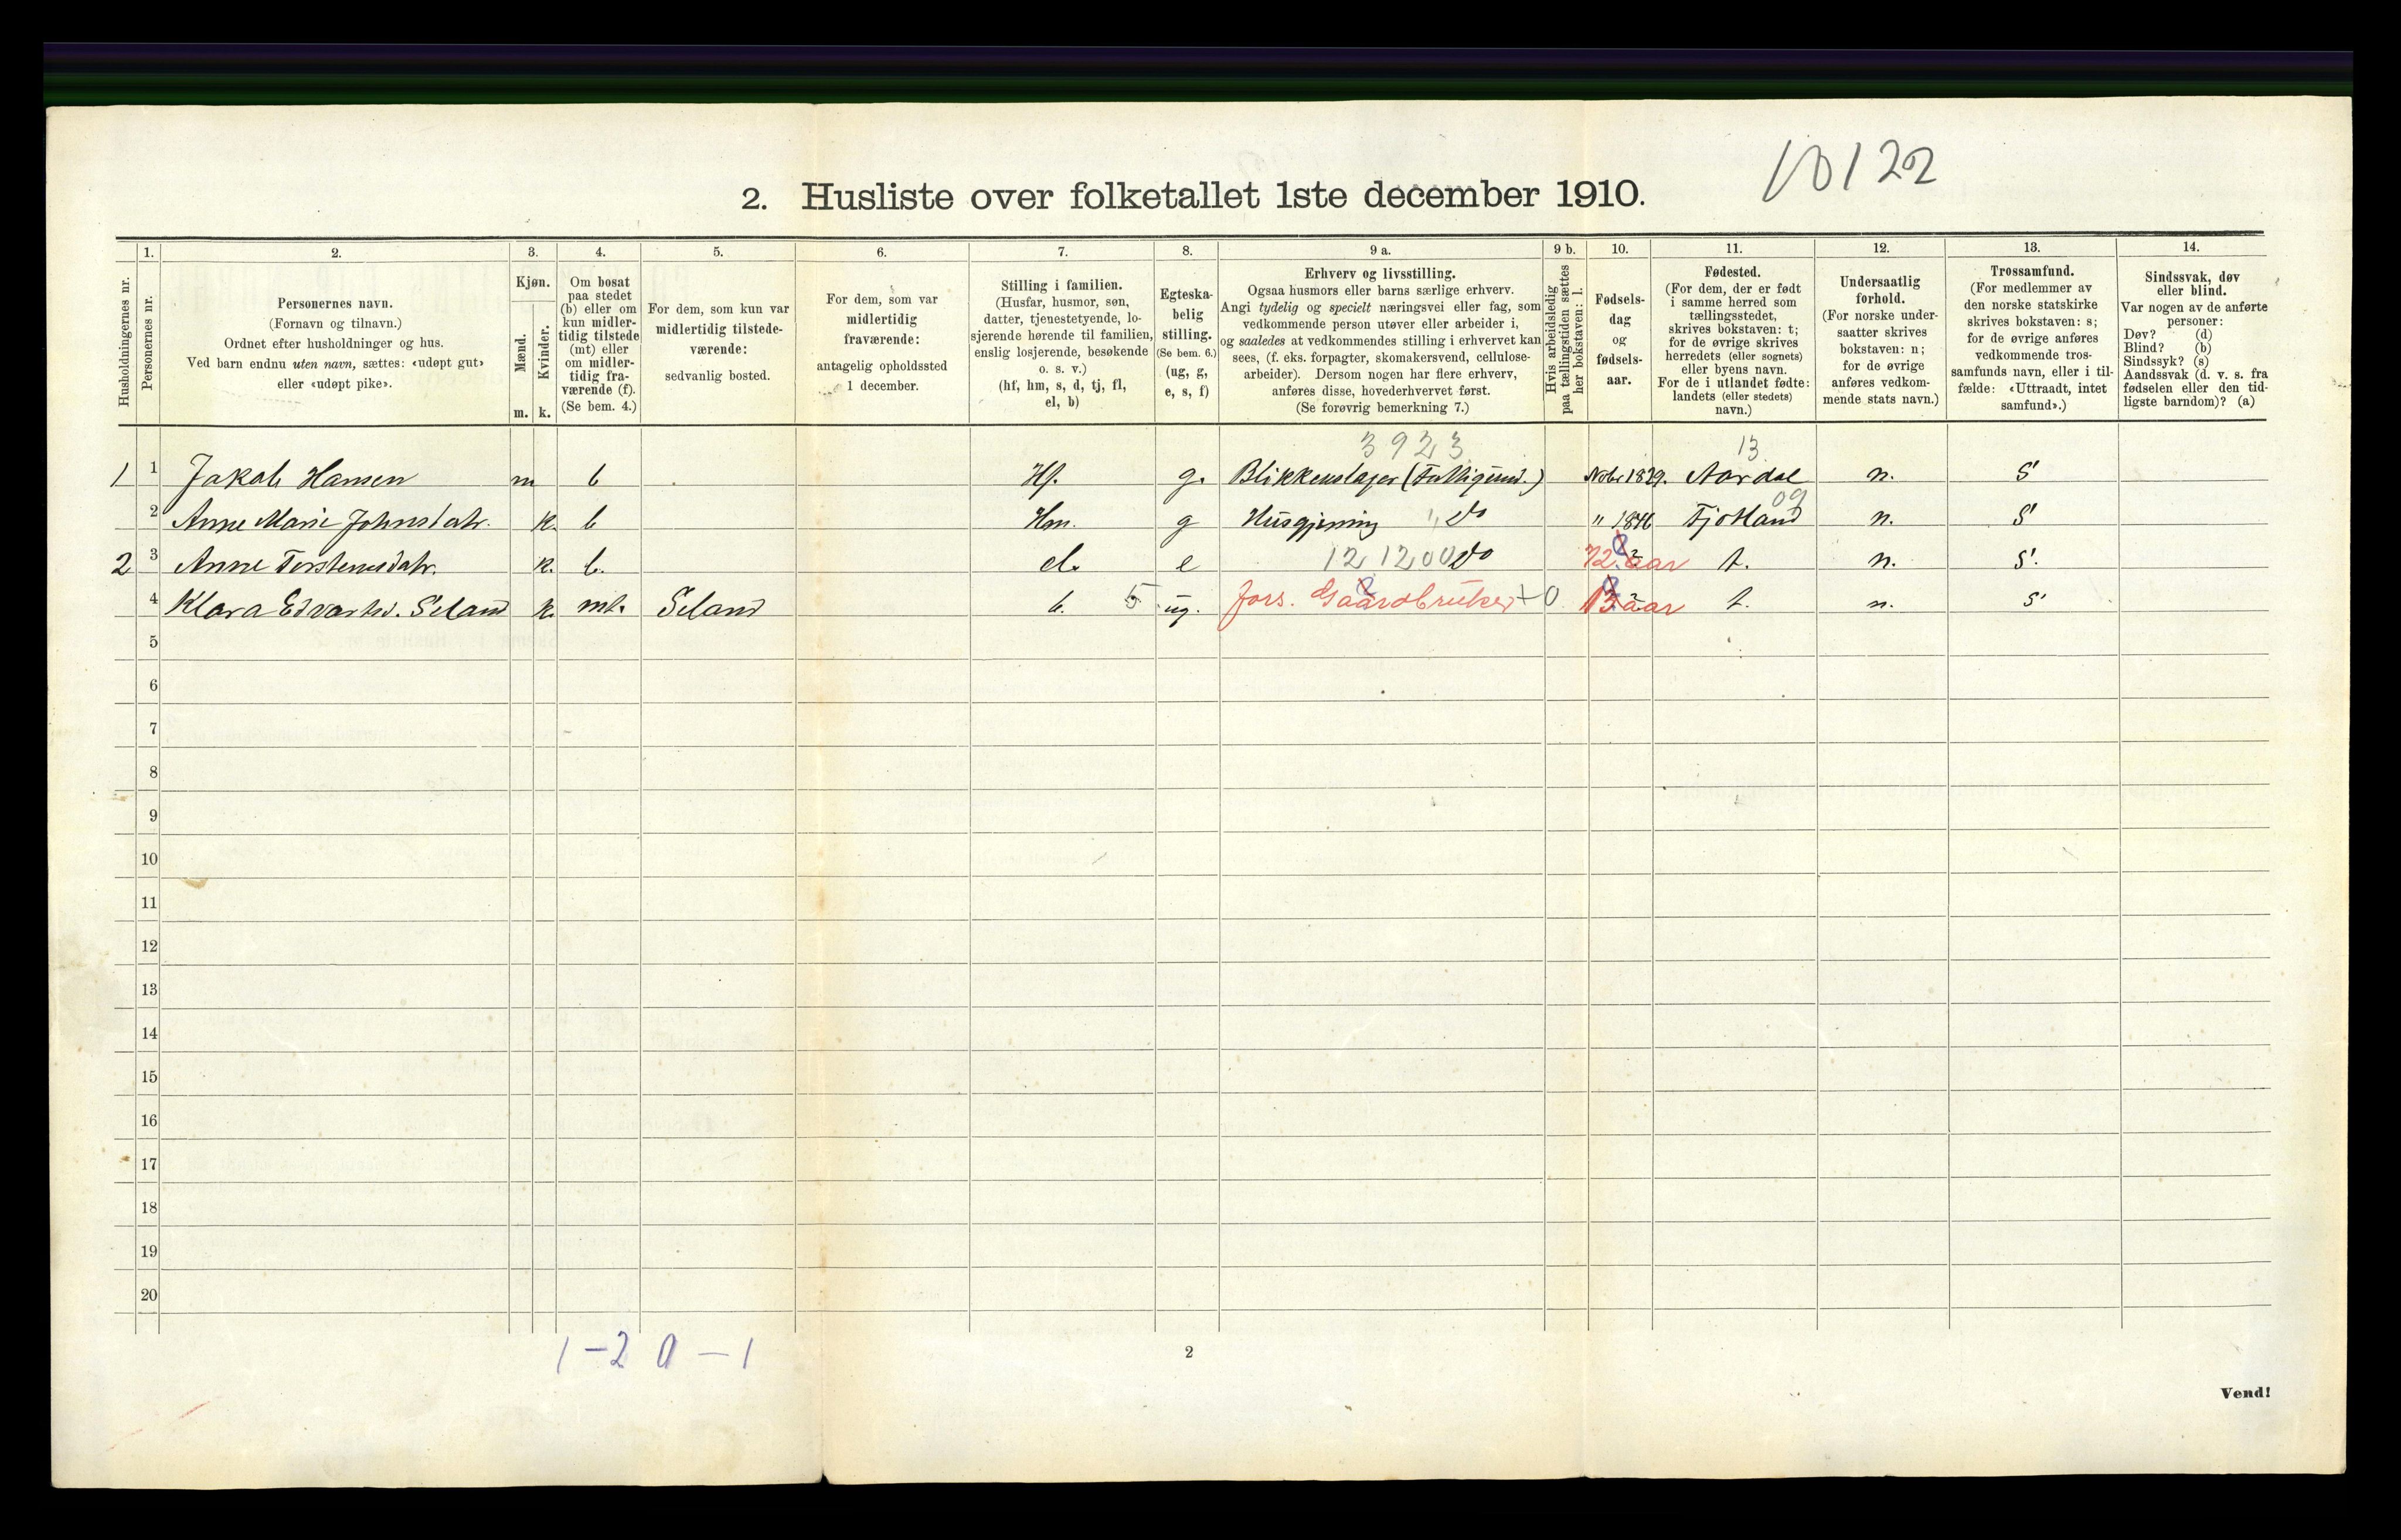 10122
2. Husliste over folketallet 1ste december 1910.
Husholdningernes nr.
1.
Personernes nr.
2.
Personernes navn.
(Fornavn og tilnavn.)
Ordnet efter husholdninger og hus.
Ved barn endnu uten navn, sættes: «udøpt gut»
eller «udøpt pike».
3.
Kjøn.
Mænd.
Kvinder.
m. k.
4.
Om bosat
paa stedet
(b) eller om
kun midler-
tidig tilstede
(mt) eller
om midler-
tidig fra-
værende (f).
(Se bem. 4.)
5.
For dem, som kun var
midlertidig tilstede-
værende:
sedvanlig bosted.
6.
For dem, som var
midlertidig
fraværende:
antagelig opholdssted
1 december.
7.
Stilling i familien.
(Husfar, husmor, søn,
datter, tjenestetyende, lo-
sjerende hørende til familien,
enslig losjerende, besøkende
o. s. v.)
(hf, hm, s, d, tj, fl,
el, b)
8.
Egteska-
belig
stilling.
(Se bem. 6.)
(ug, g,
e, s, f)
9 a.
Erhverv og livsstilling.
Ogsaa husmors eller barns særlige erhverv.
Angi tydelig og specielt næringsvei eller fag, som
vedkommende person utøver eller arbeider i,
og saaledes at vedkommendes stilling i erhvervet kan
sees, (f. eks. forpagter, skomakersvend, cellulose-
arbeider). Dersom nogen har flere erhverv,
anføres disse, hovederhvervet først.
(Se forøvrig bemerkning 7.)
9 b.
Hvis arbeidsledig
paa tællingstiden sættes
her bokstaven: l.
10.
Fødsels-
dag
og
fødsels-
aar.
11.
Fødested.
(For dem, der er født
i samme herred som
tællingsstedet,
skrives bokstaven: t;
for de øvrige skrives
herredets (eller sognets)
eller byens navn.
For de i utlandet fødte:
landets (eller stedets)
navn.)
12.
Undersaatlig
forhold.
(For norske under-
saatter skrives
bokstaven: n;
for de øvrige
anføres vedkom-
mende stats navn.)
13.
Trossamfund.
(For medlemmer av
den norske statskirke
skrives bokstaven: s;
for de øvrige anføres
vedkommende tros-
samfunds navn, eller i til-
fælde: «Uttraadt, intet
samfund».)
14.
Sindssvak, døv
eller blind.
Var nogen av de anførte
personer:
Døv? (d)
Blind? (b)
Sindssyk? (s)
Aandssvak (d. v. s. fra
fødselen eller den tid-
ligste barndom)? (a)
3923 13
1 1 Jakob Hansen m b Hf. g. Blikkenslager (Fattigund.) Nobr 1829. Aardal n. s
09
2 Anne Marie Johnsdatr. k. b Hm. g Husgjerning " Do " 1846 Fjotland n. s
2 3 Anne Torstensdatr. k. b. el. e 121200 Do 72 aar t. n. s.
4 Klara Edvardsd. Seland k. mt. Seland b. 5 ug. fors. Gaardbruker +0 13 aar t. n. s
5
6
7
8
9
10
11
12
13
14
15
16
17
18
19
20
1 - 2 0 - 1
2
Vend!